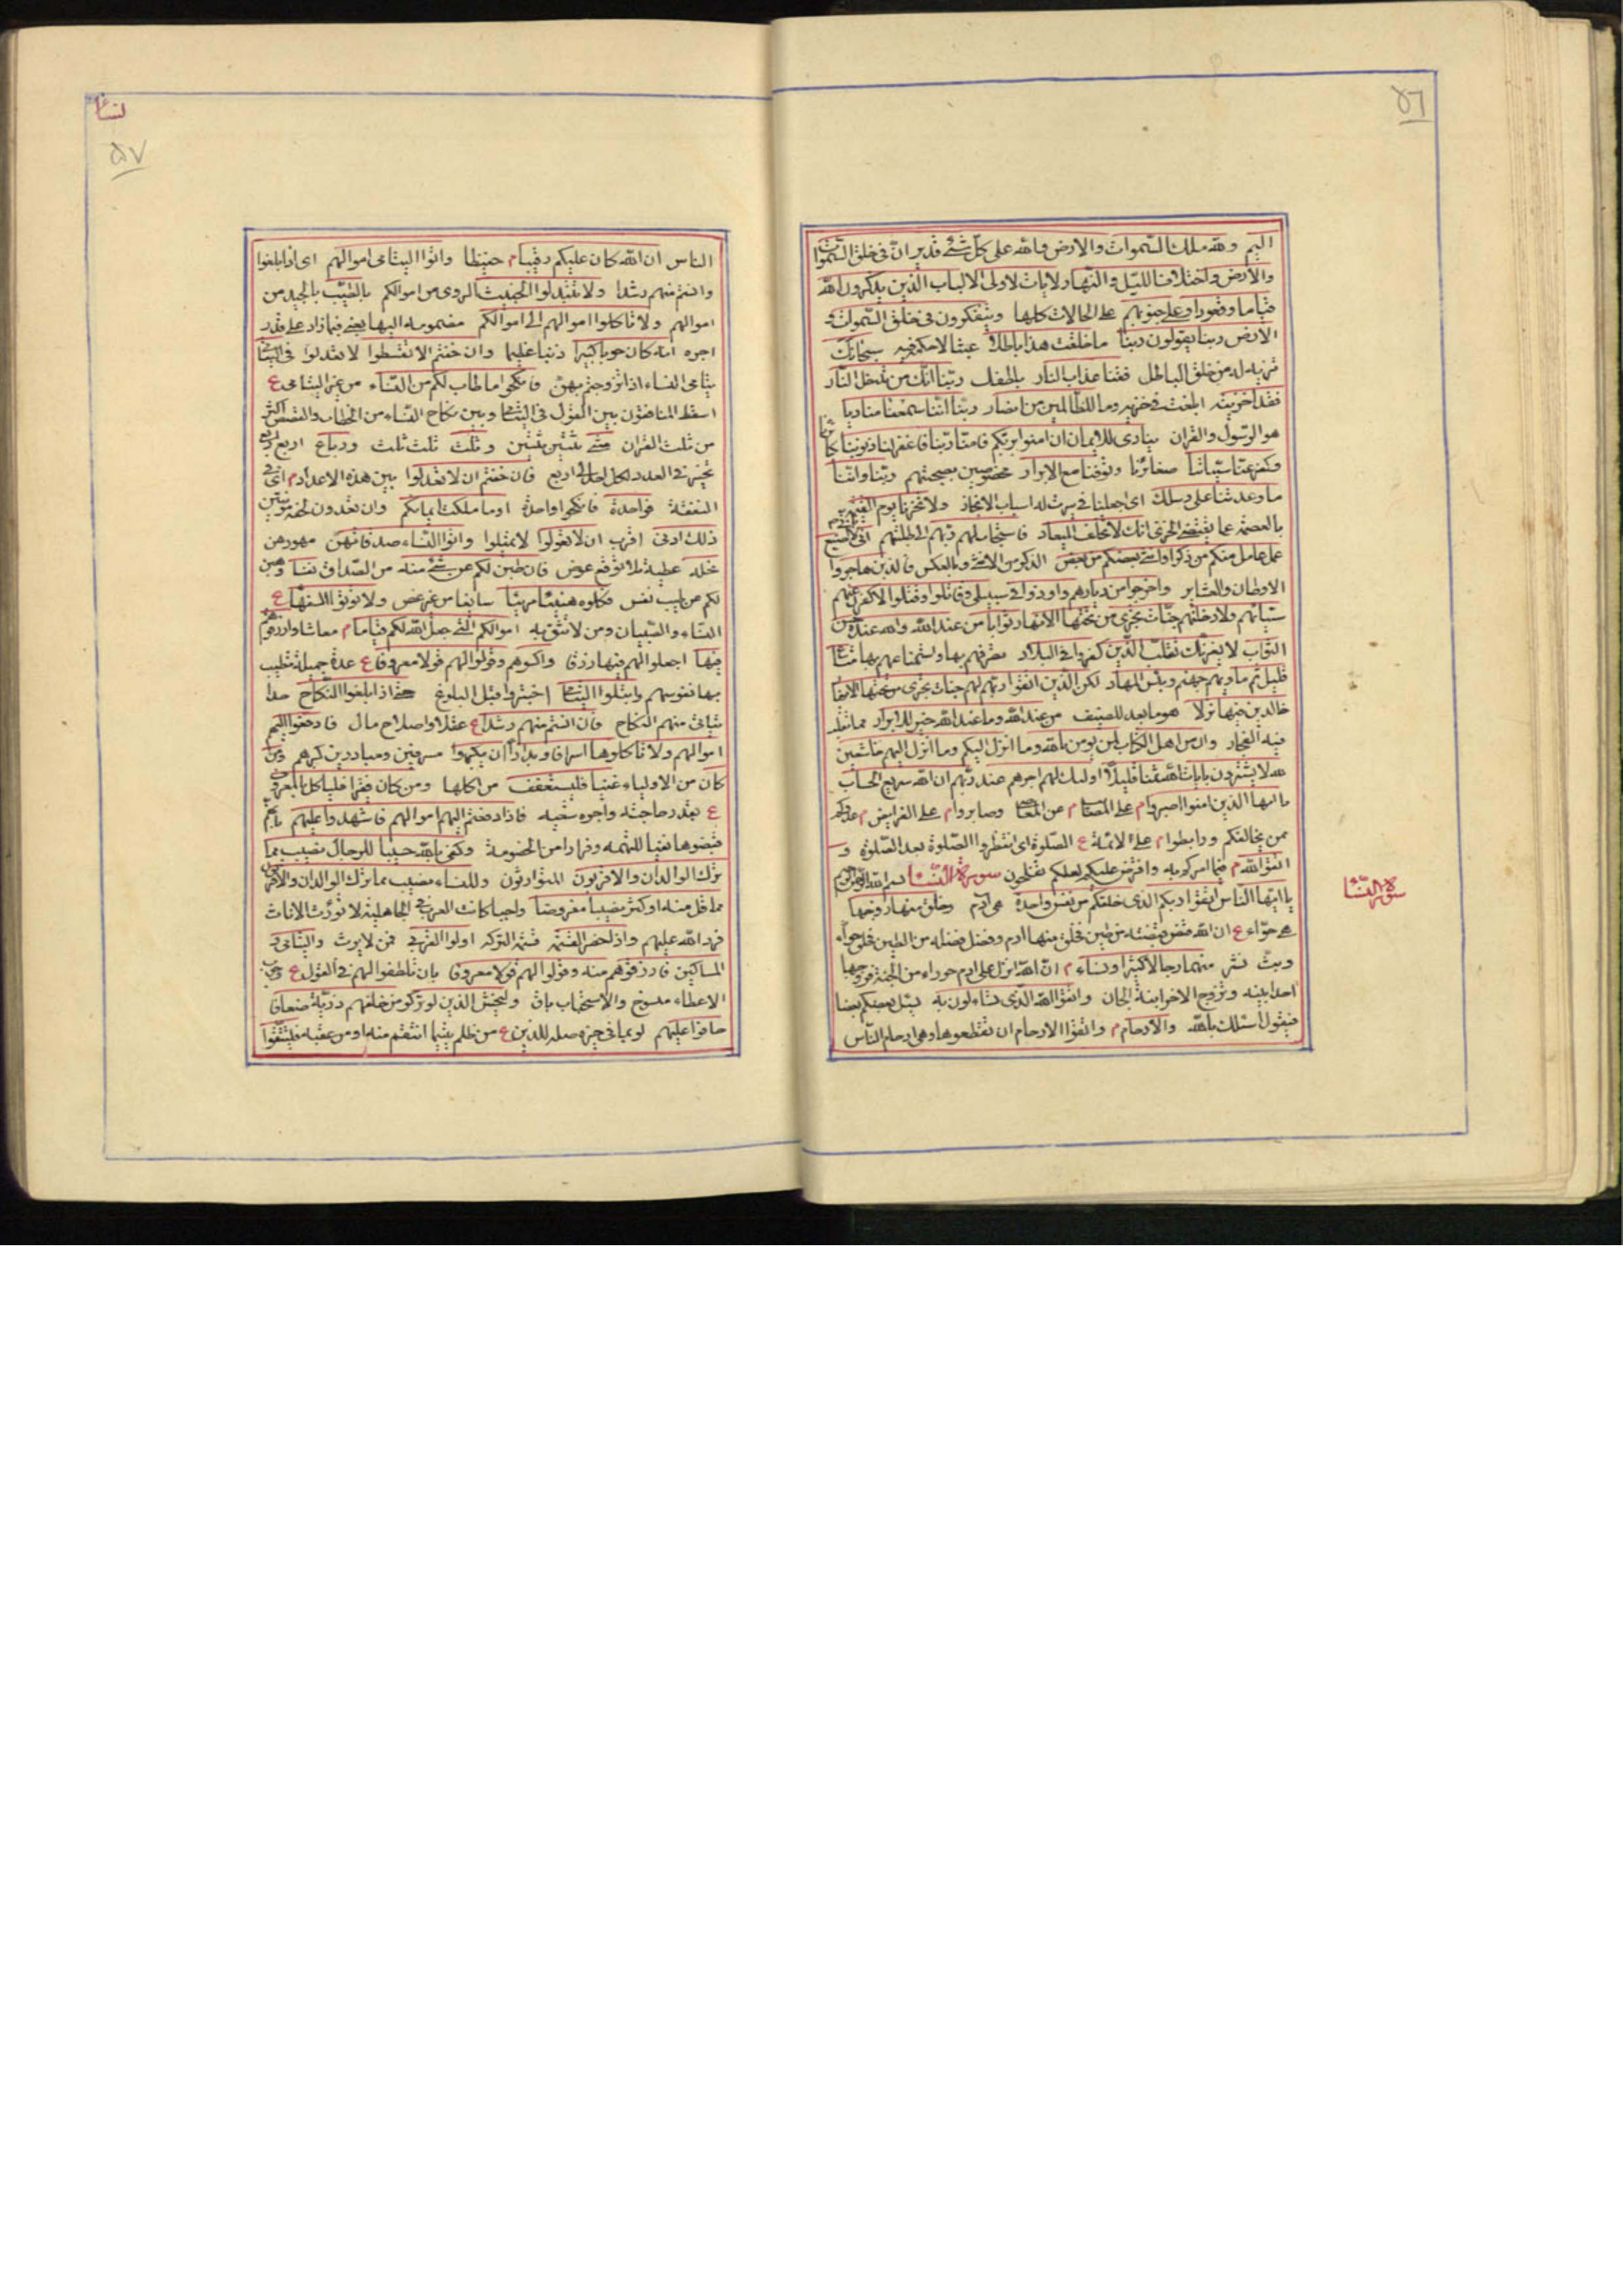 ٥٦
اليم ولله ملك السموات والارض والله على كل شئ قدير ان فى خلق السموات
والارض واختلاف الليل والنهار لايات لاولى الالباب الذين يذكرون الله
قياما وقعودا وعلى جنوبهم على الحالات كلها ويتفكرون فى خلق السموات و
الارض ربنا يقولون ربنا ما خلقت هذا باطلا عبثا لا حكمة فيه سبحانك
تنزيه له من خلق الباطل فقنا عذاب النار بلطفك ربنا انك من تدخل النار
فقد اخزيته ابلغت فى خزيه وما للظالمين من انصار ربنا اننا سمعنا مناديا
هو الرسول والقران ينادى للايمان ان امنوا بربكم فامنا ربنا فاغفر لنا ذنوبنا
وكفر عنا سيئاتنا صغائرنا وتوفنا مع الابرار مخصوصين بصحبتهم ربنا واتنا
ما وعدتنا على رسلك اى اجعلنا فى من له اسباب الانجاز ولا تخزنا يوم القيمة
بالعصمة عما يقتضى الخزى انك لا تخلف الميعاد فاستجاب لهم ربهم الى طلبتهم انى لا اضيع
عمل عامل منكم من ذكر او انثى بعضكم من بعض الذكر من الانثى وبالعكس فالذين هاجروا
الاوطان والعشاير واخرجوا من ديارهم واوذوا فى سبيلى وقاتلوا وقتلوا لاكفرن عنهم
سيئاتهم ولادخلنهم جنات تجرى من تحتها الانهار ثوابا من عند الله والله عنده حسن
الثواب لا يغرنك تقلب الذين كفروا فى البلاد تصرفهم بها وتمتعهم بها متاع
قليل ثم ماويهم جهنم وبئس المهاد لكن الذين اتقوا ربهم لهم جنات تجرى من تحتها الانهار
خالدين فيها نزلا هو ما يعد للضيف من عند الله وما عند الله خير للابرار مما يتقلب
فيه الفجار وان من اهل الكتاب لمن يؤمن بالله وما انزل اليكم وما انزل اليهم خاشعين
لله لا يشترون بايات الله ثمنا قليلا اولئك لهم اجرهم عند ربهم ان الله سريع الحساب
يا ايها الذين امنوا اصبروا م على المصائب م عن المعاصى وصابروا م على الفرايض م عدوكم
ممن يخالفكم ورابطوا م على الائمة ع الصلوة اى انتظروا الصلوة بعد الصلوة و
اتقوا الله م فيما امركم به وافترض عليكم لعلكم تفلحون سورة النساء بسم الله الرحمن الرحيم
يا ايها الناس اتقوا ربكم الذى خلقكم من نفس واحدة هى ادم وخلق منها زوجها
هى حواء ع ان الله قبض قبضته من طين فخلق منها ادم وفضل فضله من الطين فخلق حواء
وبث نشر منهما رجالا كثيرا ونساء م ان الله انزل على ادم حوراء من الجنة فزوجها
احد ابنيه وتزوج الاخر ابنة الجان واتقوا الله الذى تساءلون به يسئل بعضكم بعضا
فيقول اسئلك بالله والارحام م واتقوا الارحام ان تقطعوها وهى ارحام الناس
سورة النساء
نساء
٥٧
الناس ان الله كان عليكم رقيبا م حفيظا واتوا اليتامى اموالهم اى اذا بلغوا
وانستم منهم رشدا ولا تتبدلوا الخبيث الردى من اموالكم بالطيب بالجيد من
اموالهم ولا تاكلوا اموالهم الى اموالكم مضمومة اليها يعنى فيما زاد على قدر
اجره انه كان حوبا كبيرا ذنبا عظيما وان خفتم الا تقسطوا لا تعدلوا فى اليتامى
يتامى النساء اذا تزوجتم بهن فانكحوا ما طاب لكم من النساء من غير اليتامى ع
اسقط المنافقون بين القول فى اليتامى وبين نكاح النساء من الخطاب والقصص اكثر
من ثلث القران مثنى ثنتين ثنتين وثلث ثلث ثلث ورباع اربع اربع
تخيير فى العدد لكل احد الى اربع فان خفتم ان لا تعدلوا بين هذه الاعداد م اى فى
النفقة فواحدة فانكحوا واحدة او ما ملكت ايمانكم وان تعددن
ذلك ادنى اقرب ان لا تعولوا لا تميلوا واتوا النساء صدقاتهن مهورهن
نحلة عطية بلا توقع عوض فان طبن لكم عن شئ منه من الصداق نفسا وهبن
لكم من طيب نفس فكلوه هنيئا مريئا سائغا من غير غص ولا تؤتوا السفهاء ع
النساء والصبيان ومن لا تثق به اموالكم التى جعل الله لكم قياما م معاشا وارزقوهم
فيها اجعلوا لهم فيها رزقا واكسوهم وقولوا لهم قولا معروفا ع عدة جميلة تطيب
بها نفوسهم وابتلوا اليتامى اختبروا قبل البلوغ حتى اذا بلغوا النكاح حدا
يتاتى منهم النكاح فان انستم منهم رشدا ع عقلا واصلاح مال فادفعوا اليهم
اموالهم ولا تاكلوها اسرافا وبدارا ان يكبروا مسرفين ومبادرين كبرهم ومن
كان من الاولياء غنيا فليستعفف من اكلها ومن كان فقيرا فلياكل بالمعروف
ع بقدر حاجته واجره سعيه فاذا دفعتم اليهم اموالهم فاشهدوا عليهم بانهم
قبضوها نفيا للتهمة وفرارا من الخصومة وكفى بالله حسيبا للرجال نصيب مما
ترك الوالدان والاقربون المتوارثون وللنساء نصيب مما ترك الوالدان والاقربون
مما قل منه او كثر نصيبا مفروضا واجبا كانت العرب فى الجاهلية لا تورث الاناث
فرد الله عليهم واذا حضر القسمة قسمة التركة اولوا القربى ممن لا يرث واليتامى و
المساكين فارزقوهم منه وقولوا لهم قولا معروفا بان تلطفوا لهم فى القول ع
الاعطاء منسوخ والاستحباب باق وليخش الذين لو تركوا من خلفهم ذرية ضعافا
خافوا عليهم صلة للذين ع من ظلم يتيما انتقم منه او من عقبه فليتقوا